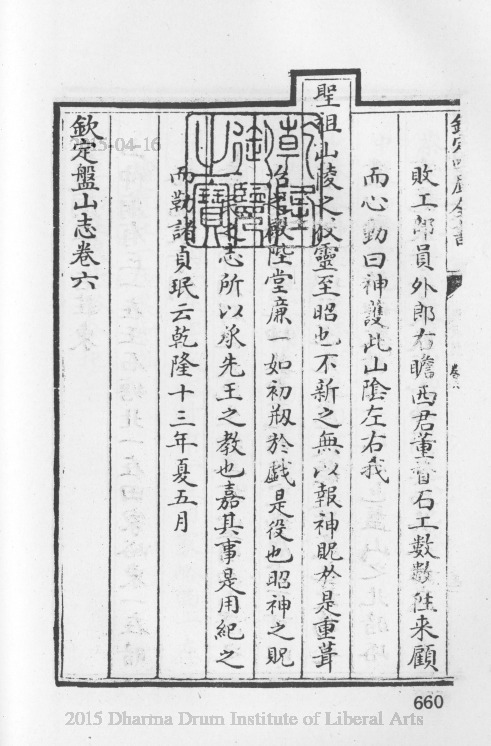 敗工部員外郎右瞻西君董晉石工數數往來顧
而心動曰神護此山陰左右我
聖祖山陵之收靈至昭也不新之無以報神貺於是重葺
殿陛堂廉一如初剏於戲是役也昭神之貺
志所以承先王之教也嘉其事是用紀之
而勒諸貞珉云乾隆十三年夏五月
欽定盤山志卷六
乾隆御覽之寶
2015-04-16
660
2015 Dharma Drum Institute of Liberal Arts